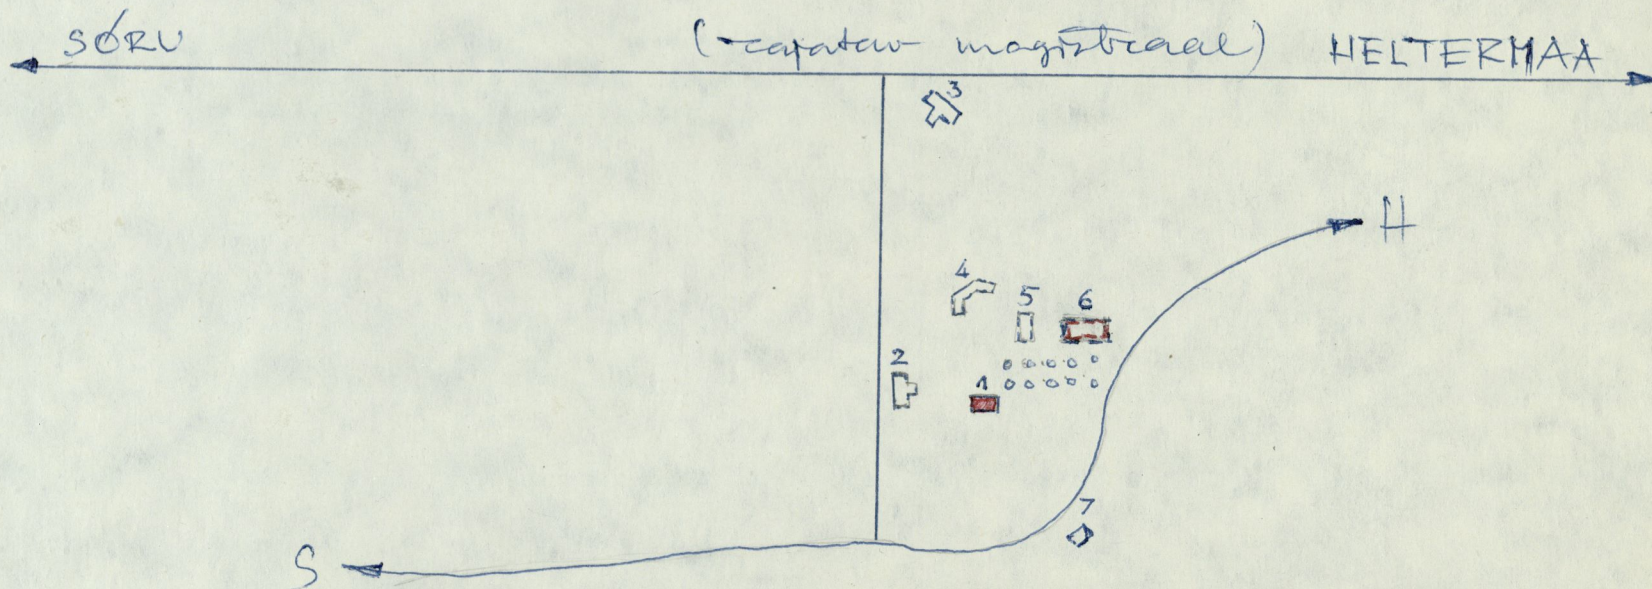 SÕRU (rajatav magistraal) HELTERMAA
3
H
4
5 6
2
1
7
S